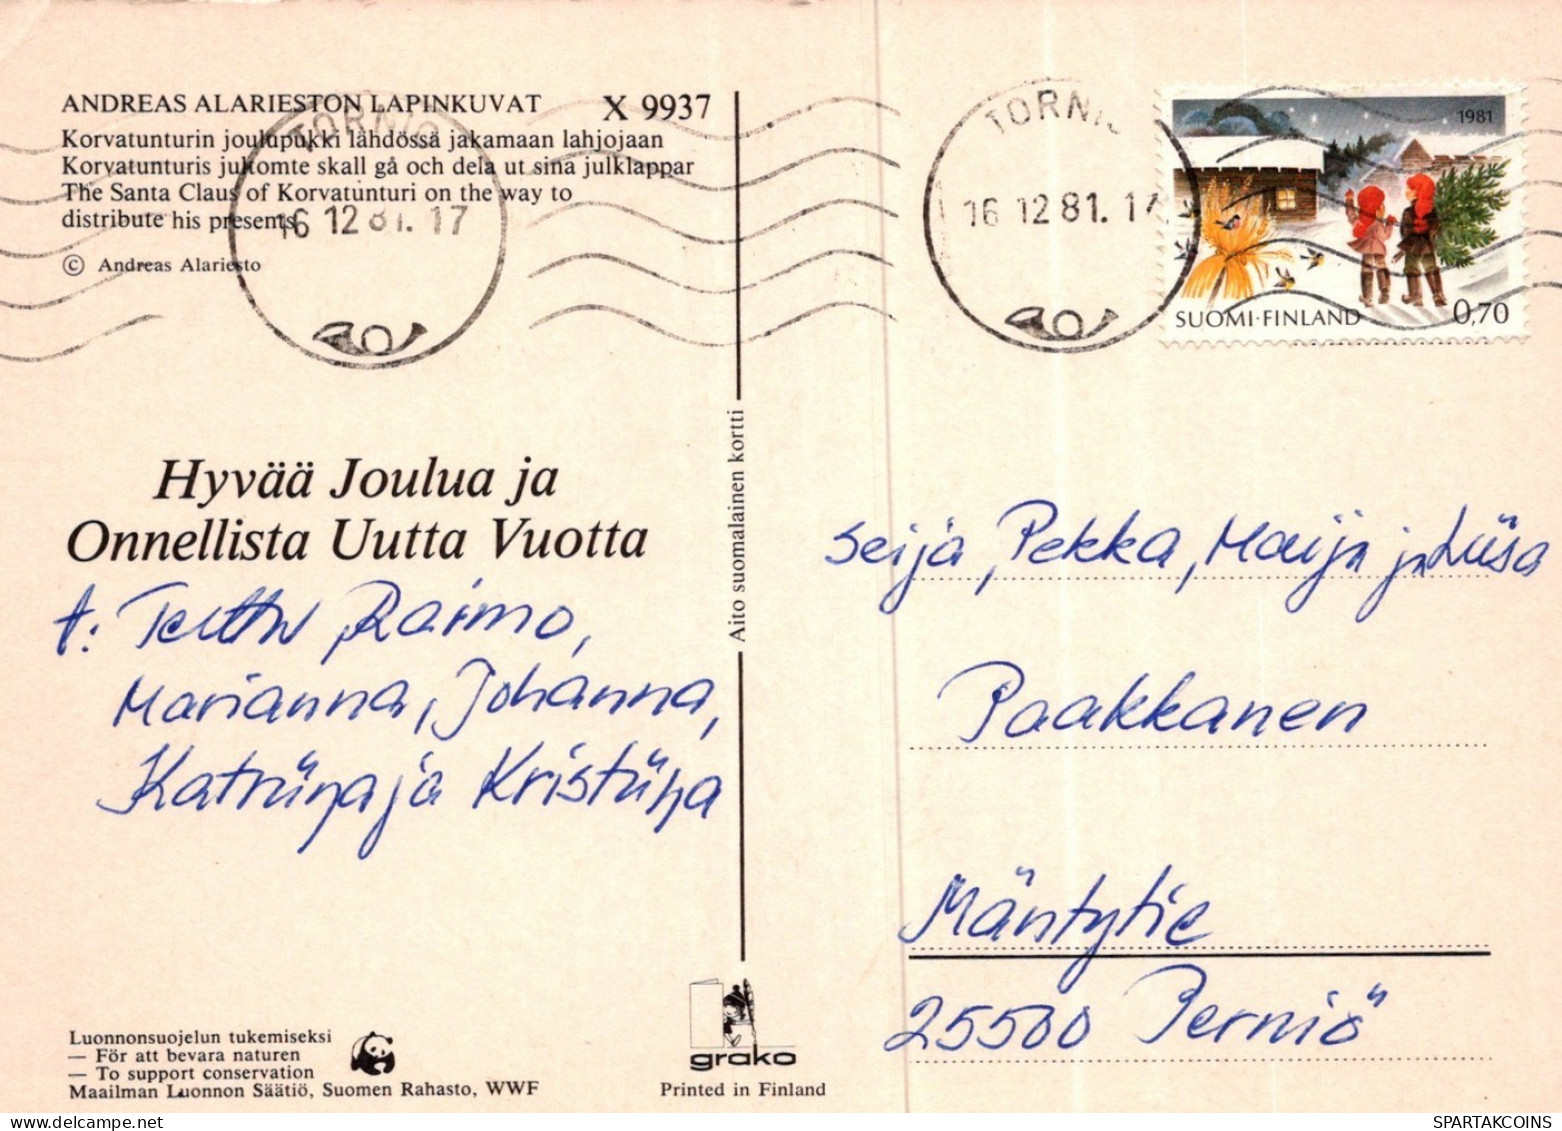 ANDREAS ALARIESTON LAPINKUVAT X 9937
Korvatunturin joulupukki lähdössä jakamaan lahjojaan
Korvatunturis jultomte skall gå och dela ut sina julklappar
The Santa Claus of Korvatunturi on the way to
distribute his presents
© Andreas Alariesto
TORNIO
16 12 81. 17
TORNIO
16 12 81. 17
1981
SUOMI·FINLAND 0,70
Hyvää Joulua ja
Onnellista Uutta Vuotta
t: Terttu, Raimo,
Marianna, Johanna,
Katriina ja Kristiina
Aito suomalainen kortti
Seija, Pekka, Maija ja Liisa
Paakkanen
Mäntytie
25500 Perniö
Luonnonsuojelun tukemiseksi
— För att bevara naturen
— To support conservation
Maailman Luonnon Säätiö, Suomen Rahasto, WWF
grako
Printed in Finland
SPARTAKCOINS